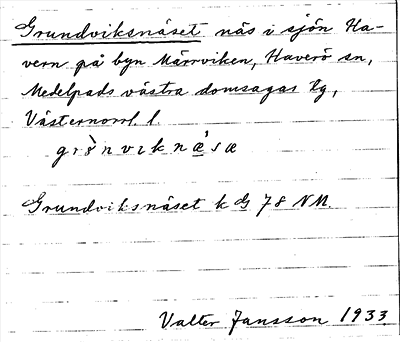 Grundviksnäset näs i sjön Ha-
vern på byn Märrviken, Haverö sn,
Medelpads västra domsagas tg,
Västernorrl. l.
Grundviksnäset k 78 NM.
Valter Jansson 1933